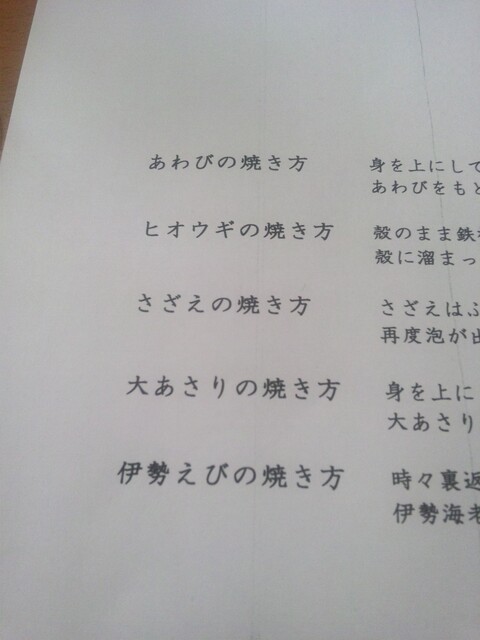 あわびの焼き方 身を上にして
あわびをもと
ヒオウギの焼き方 殻のまま鉄
殻に溜まっ
さざえの焼き方 さざえはふ
再度泡が出
大あさりの焼き方 身を上に
大あさり
伊勢えびの焼き方 時々裏返
伊勢海老